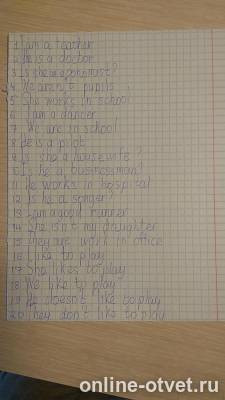 1 I am a teacher
2 He is a doctor
3 Is she a economist?
4 We aren't pupils
5 She works in school
6 I am a dancer
7 We are in school
8 He is a pilot
9 Is she a housewife?
10 Is he a businessman?
11 He works in hospital
12 Is he a songer?
13 I am a good runner
14 She isn't my daughter
15 They are work in office
16 I like to play
17 She likes to play
18 We like to play
19 He doesn't like to play
20 They don't like to play
online-otvet.ru